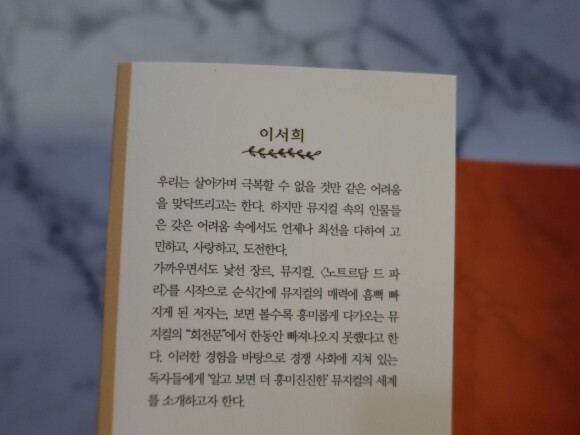 이서희
우리는 살아가며 극복할 수 없을 것만 같은 어려움
을 맞닥뜨리고는 한다. 하지만 뮤지컬 속의 인물들
은 갖은 어려움 속에서도 언제나 최선을 다하여 고
민하고, 사랑하고, 도전한다.
가까우면서도 낯선 장르, 뮤지컬. 〈노트르담 드 파
리〉를 시작으로 순식간에 뮤지컬의 매력에 흠뻑 빠
지게 된 저자는, 보면 볼수록 흥미롭게 다가오는 뮤
지컬의 “회전문”에서 한동안 빠져나오지 못했다고 한
다. 이러한 경험을 바탕으로 경쟁 사회에 지쳐 있는
독자들에게 ‘알고 보면 더 흥미진진한’ 뮤지컬의 세계
를 소개하고자 한다.